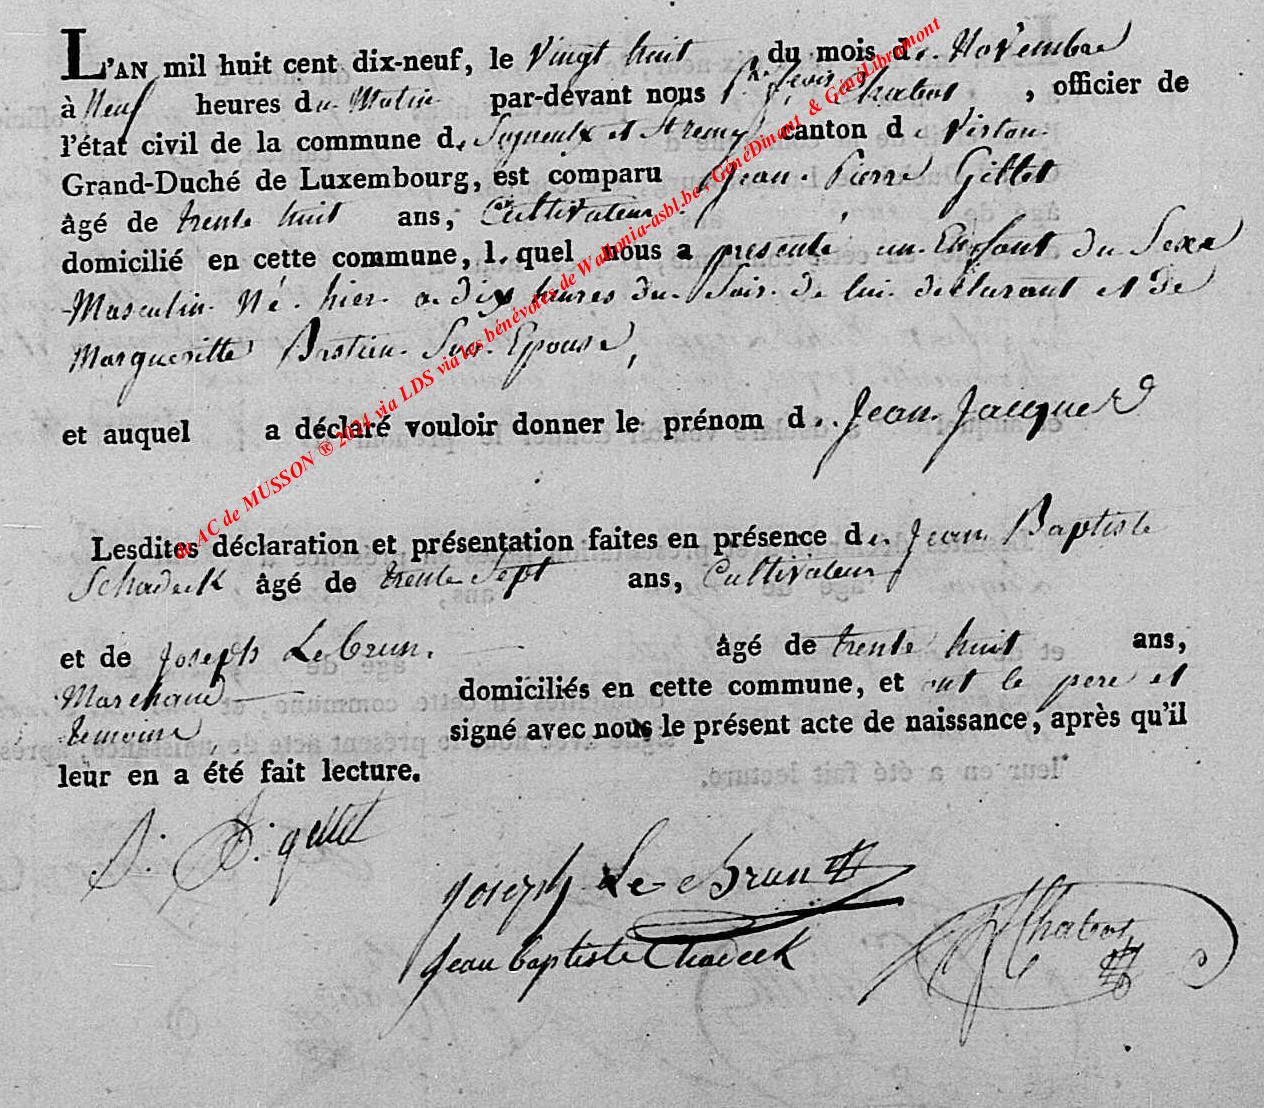 L'AN mil huit cent dix-neuf, le Vingt huit du mois de Novembre
à Neuf heures du Matin par-devant nous Chabot, officier de
l'état civil de la commune de Signeulx et St remy canton de Virton
Grand-Duché de Luxembourg, est comparu Jean Pierre Gillet
âgé de trente huit ans, Cultivateur
domicilié en cette commune, lequel nous a presenté un Enfant du Sexe
Masculin Né hier a dix heures du Soir de lui déclarant et de
Margueritte Bastien Son Epouse,
et auquel a déclaré vouloir donner le prénom de Jean Jacques
Lesdites déclaration et présentation faites en présence de Jean Baptiste
Schadeck âgé de trente Sept ans, Cultivateur
et de Joseph LeBrun. âgé de trente huit ans,
Marchand domiciliés en cette commune, et ont le pere et
temoins signé avec nous le présent acte de naissance, après qu'il
leur en a été fait lecture.
gillet
Joseph Le Brun
Jean baptiste Chadeck
Chabot
© AC de MUSSON ® 2024 via LDS via les bénévoles de Wallonia-asbl.be, GénéDinant & GénéLibramont